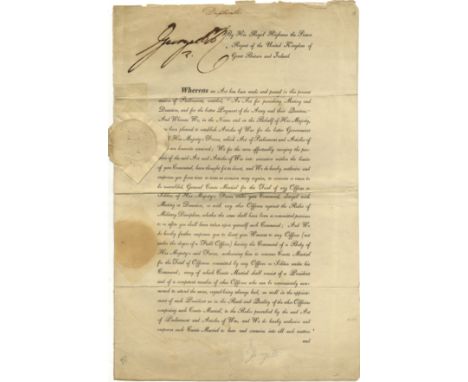 Duplicate
By His Royal Highness the Prince
Regent of the United Kingdom of
Great Britain and Ireland
George P R
Whereas an Act has been made and passed in this present
session of Parliament, entitled, "An Act for punishing Mutiny and
Desertion, and for the better Payment of the Army and their Quarters."
And Whereas We, in the Name and on the Behalf of His Majesty,
been pleased to establish Articles of War for the better Government
His Majesty's Forces, which Act of Parliament and Articles of
are herewith received; We for the more effectually carrying the
of the said Act and Articles of War into execution within the limits
of your Command, have thought fit to direct, and We do hereby authorize and
empower you from time to time as occasion may require, to convene or cause to
be assembled, General Courts Martial for the Trial of any Officer or
Soldier of His Majesty's Forces under your Command, charged with
Mutiny or Desertion, or with any other Offence against the Rules of
Military Discipline, whether the same shall have been committed previous
to or after you shall have taken upon yourself such Command; And We
do hereby further empower you to direct your Warrant to any Officer (not
under the degree of a Field Officer) having the Command of a Body of
His Majesty's said Forces, authorizing him to convene Courts Martial
for the Trial of Offences committed by any Officer or Soldier under his
Command; every of which Courts Martial shall consist of a President
and of a competent number of other Officers who can be conveniently sum-
moned to attend the same, regard being always had, as well in the appoint-
ment of such President as in the Rank and Quality of the other Officers
composing such Courts Martial, to the Rules prescribed by the said Act
of Parliament and Articles of War, and We do hereby authorize and
empower such Courts Martial to hear and examine into all such matters
and